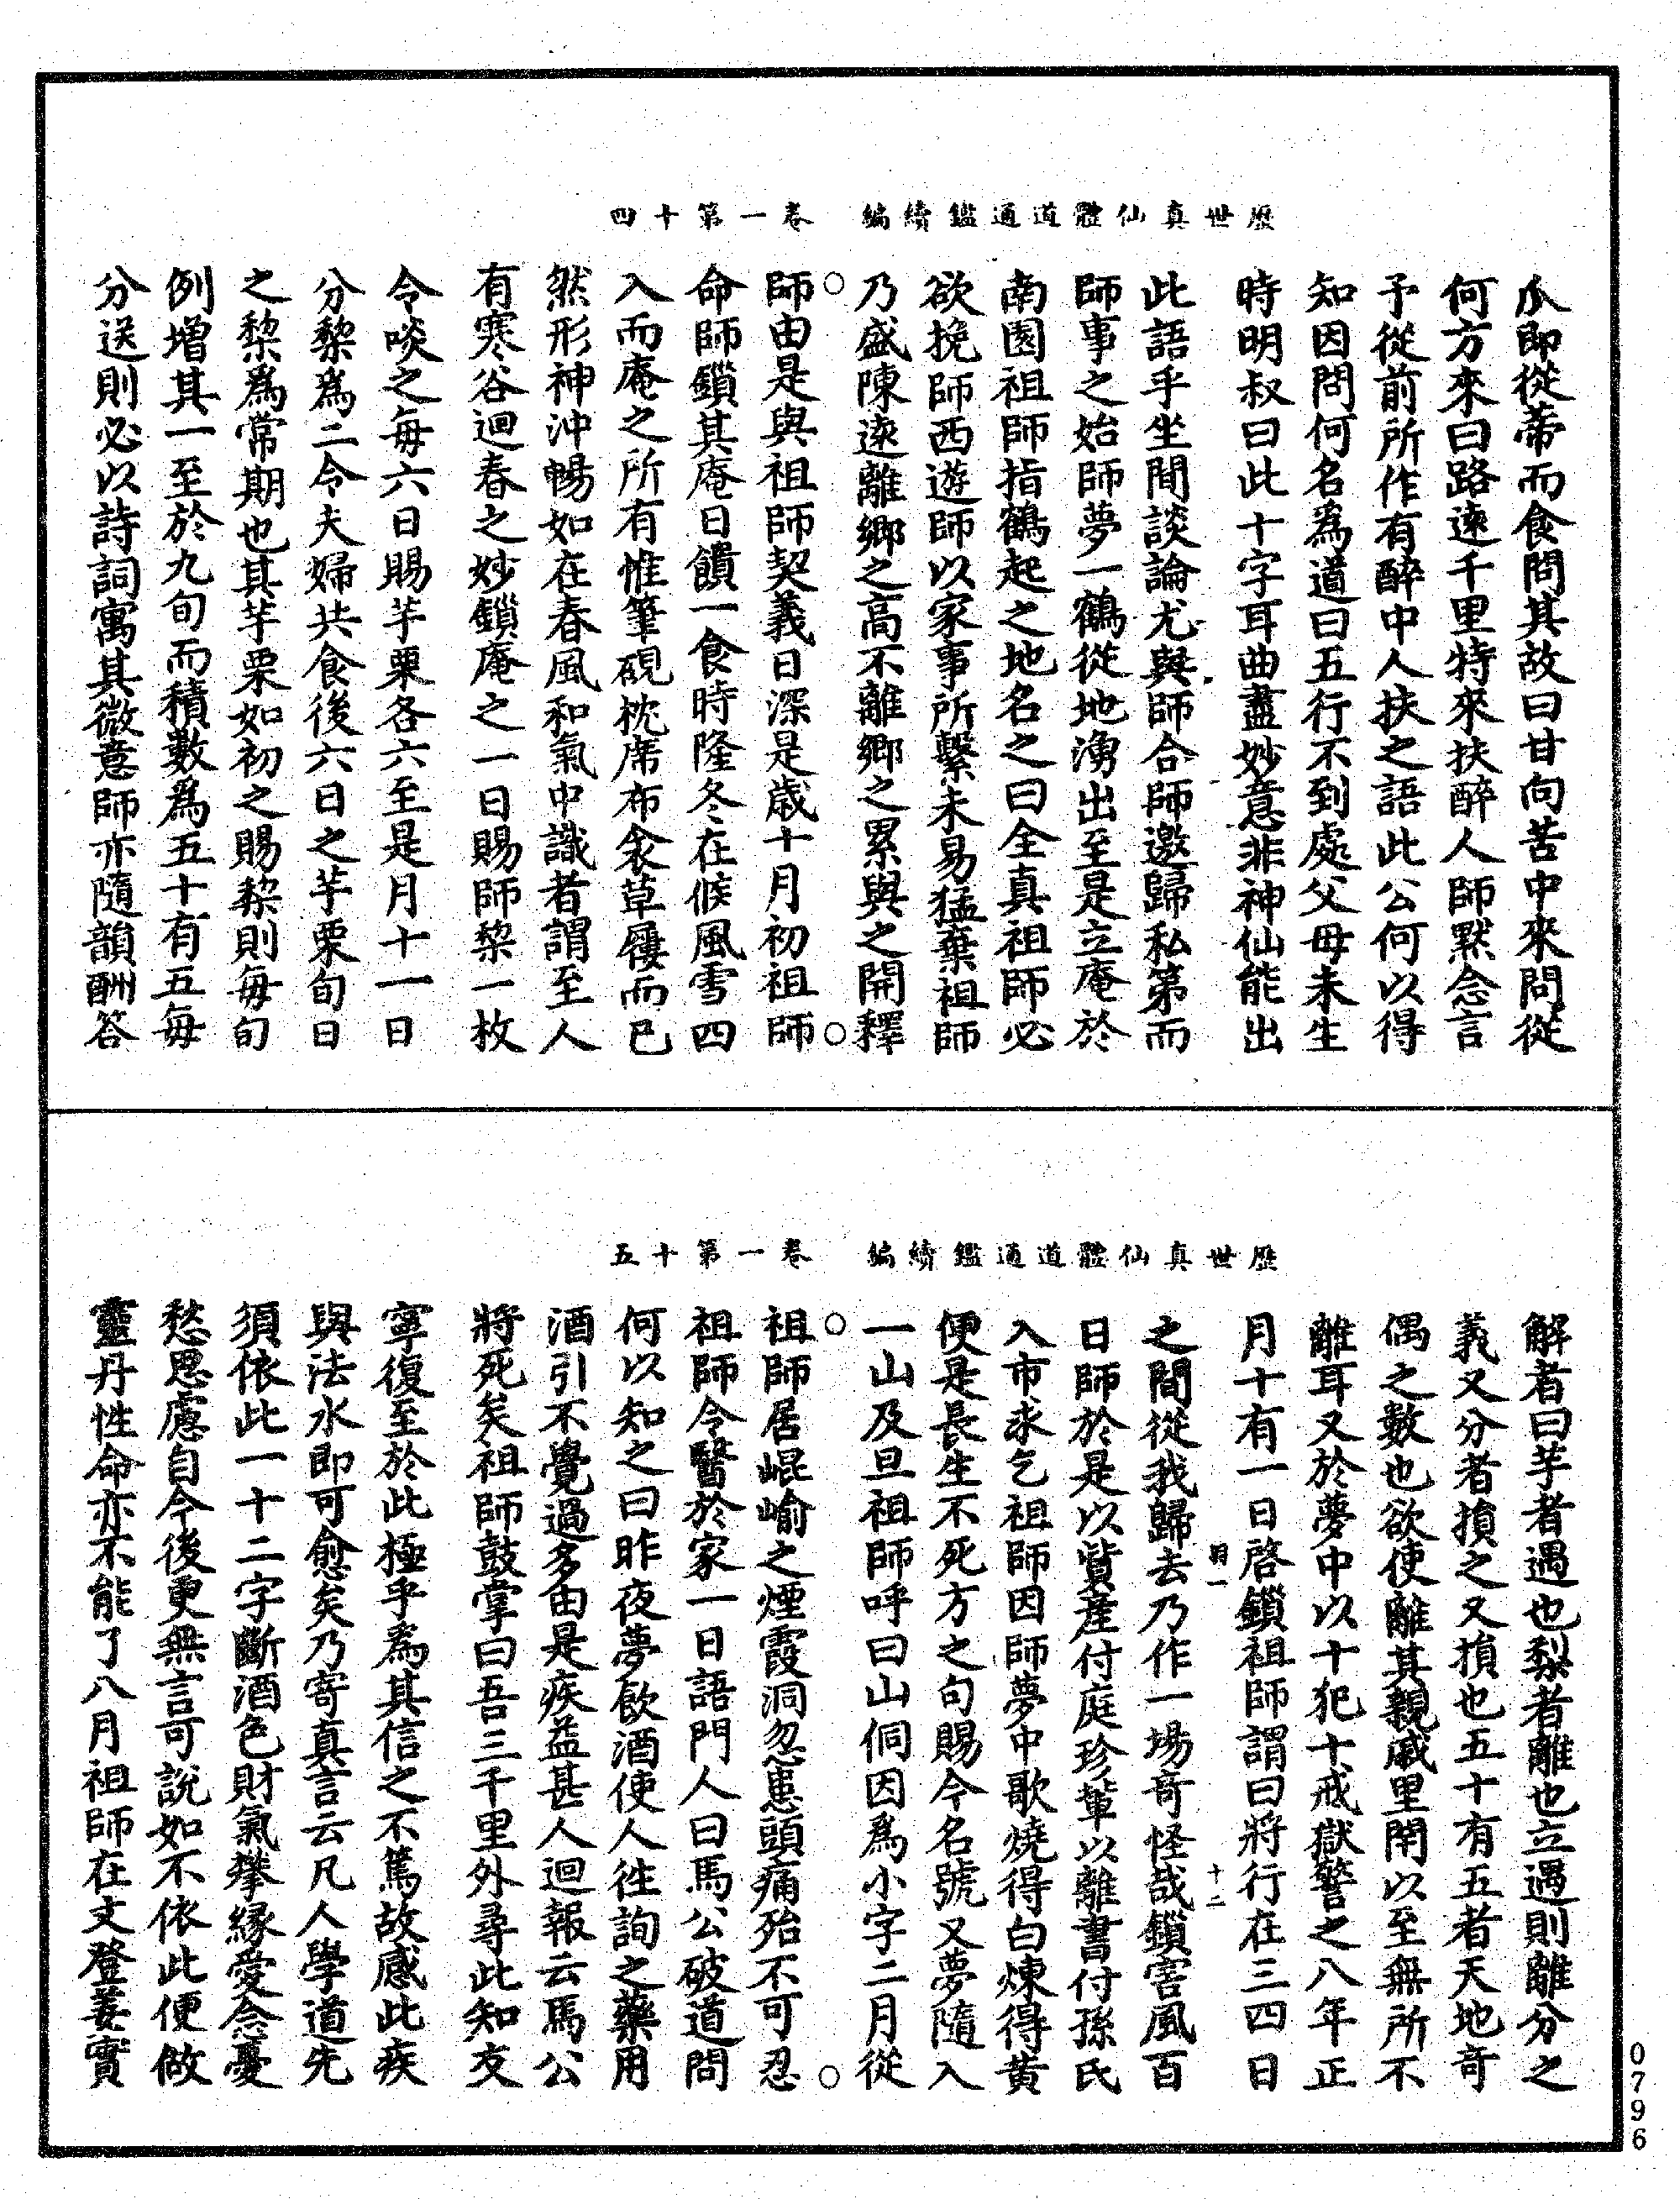 歷世真仙體道通鑑續編　卷一第十四
瓜即從蒂而食問其故曰甘向苦中來問從
何方來曰路遠千里特來扶醉人師默念言
予從前所作有醉中人扶之語此公何以得
知因問何名爲道曰五行不到處父母未生
時明叔曰此十字耳曲盡妙意非神仙能出
此語乎坐間談論尤與師合師邀歸私第而
師事之始師夢一鶴從地湧出至是立庵於
南園祖師指鶴起之地名之曰全真祖師必
欲挽師西遊師以家事所繫未易猛棄祖師
乃盛陳遠離鄉之高不離鄉之累與之開釋
師由是與祖師契義日深是歲十月初祖師
命師鎖其庵日饋一食時隆冬在候風雪四
入而庵之所有惟筆硯枕席布衾草屨而已
然形神沖暢如在春風和氣中識者謂至人
有寒谷迴春之妙鎖庵之一日賜師棃一枚
令啖之每六日賜芋栗各六至是月十一日
分棃爲二令夫婦共食後六日之芋栗旬日
之棃爲常期也其芋栗如初之賜棃則每旬
例增其一至於九旬而積數爲五十有五每
分送則必以詩詞寓其微意師亦隨韻酬答
歷世真仙體道通鑑續編　卷一第十五
解者曰芋者遇也梨者離也立遇則離分之
義又分者損之又損也五十有五者天地奇
偶之數也欲使離其親戚里閈以至無所不
離耳又於夢中以十犯十戒獄警之八年正
月十有一日啓鎖祖師謂曰將行在三四日
羽一　十二
之間從我歸去乃作一場奇怪哉鎖害風百
日師於是以貲產付庭珍輩以離書付孫氏
入市求乞祖師因師夢中歌燒得白煉得黃
便是長生不死方之句賜今名號又夢隨入
一山及旦祖師呼曰山侗因爲小字二月從
祖師居崐嵛之煙霞洞忽患頭痛殆不可忍
祖師令醫於家一日語門人曰馬公破道問
何以知之曰昨夜夢飲酒使人徃詢之藥用
酒引不覺過多由是疾益甚人迴報云馬公
將死矣祖師鼓掌曰吾三千里外尋此知友
寧復至於此極乎爲其信之不篤故感此疾
與法水即可愈矣乃寄真言云凡人學道先
須依此一十二字斷酒色財氣攀緣愛念憂
愁思慮自今後更無言可說如不依此便做
靈丹性命亦不能了八月祖師在文登姜實
0796